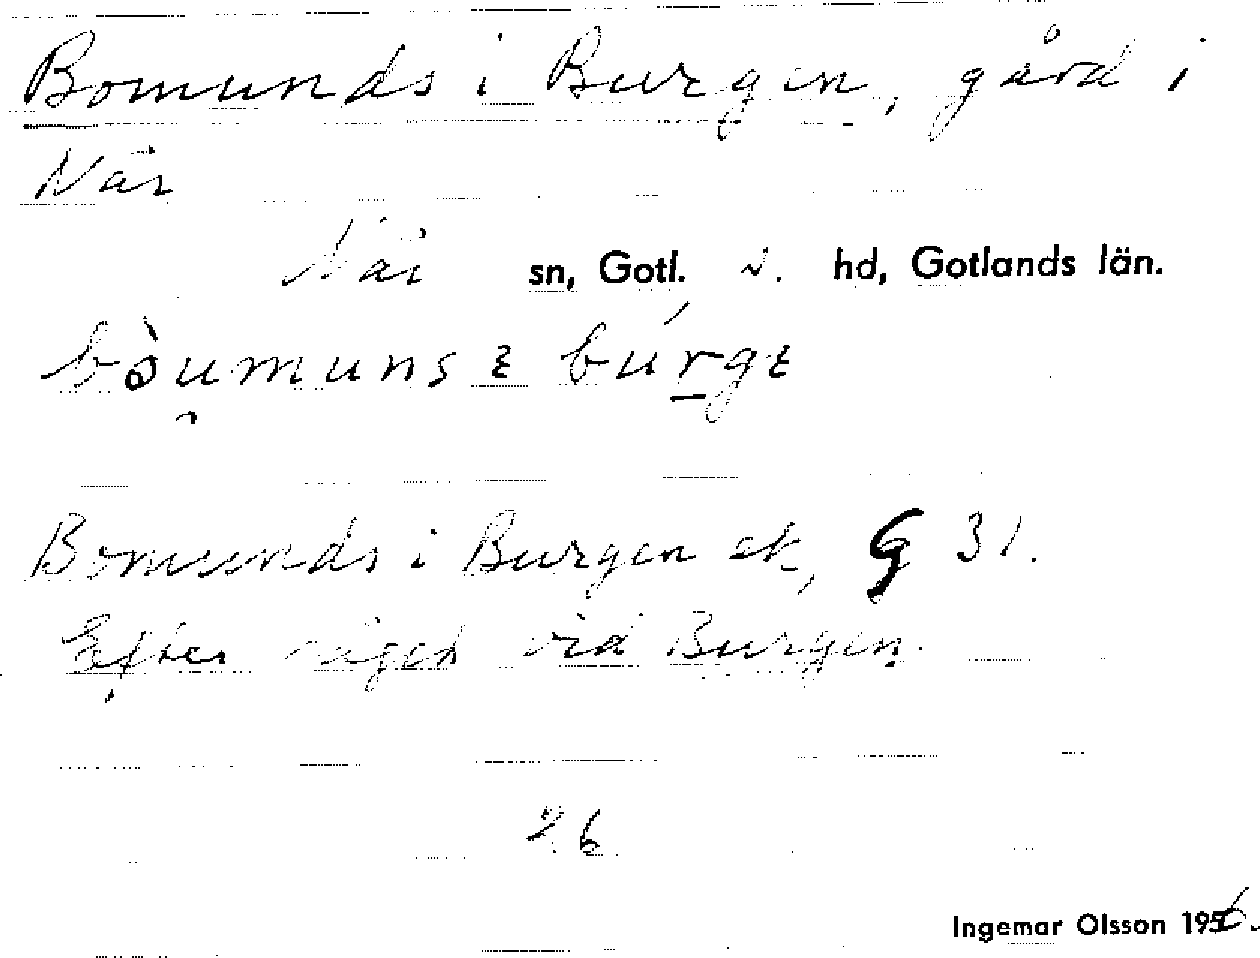 Bomunds i Burgen, gård i
När
När sn, Gotl. s. hd, Gotlands län.
bòu̯muns ɛ búrgɛ
Bomunds i Burgen ek, G 31.
Efter läget vid Burgen.
26
Ingemar Olsson 1956.